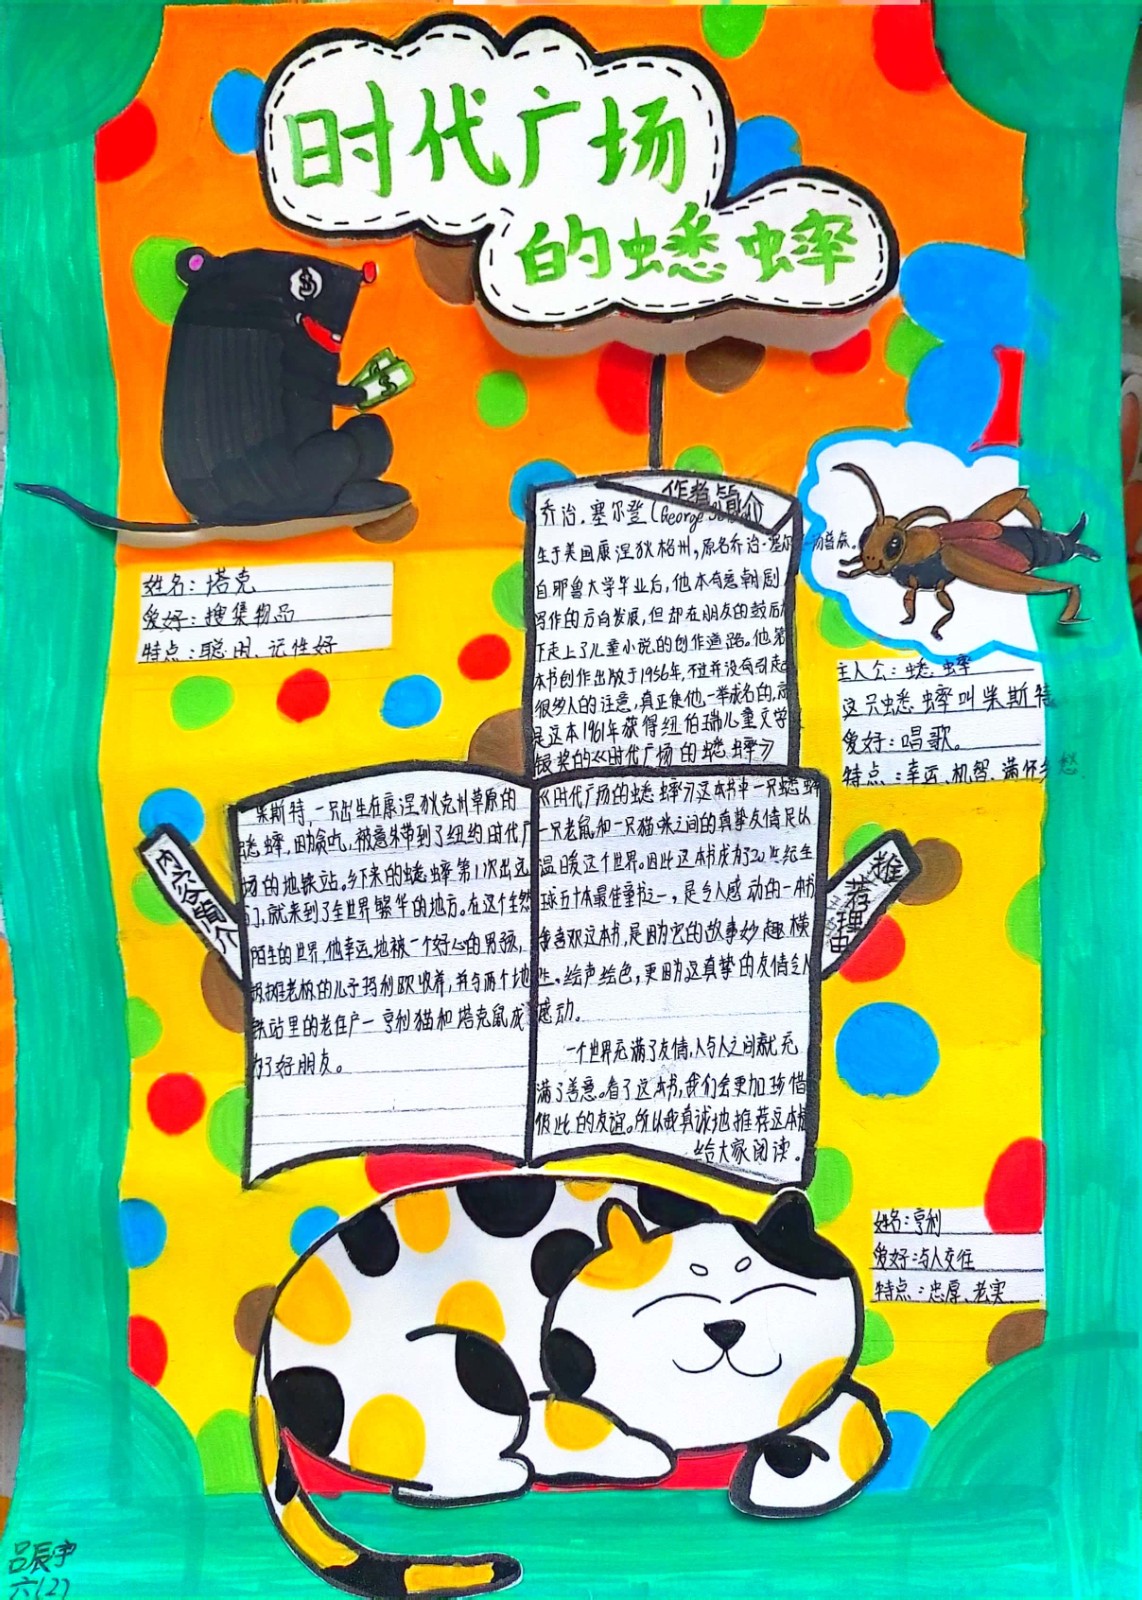 时代广场
的蟋蟀
姓名：塔克
爱好：搜集物品
特点：聪明、记性好
作者简介
乔治.塞尔登(George
生于美国康涅狄格州，原名乔治·塞尔
自耶鲁大学毕业后，他本有意朝剧
写作的方向发展，但却在朋友的鼓励
下走上了儿童小说的创作道路。他第
本书创作出版于1956年，不过并没有引起
很多人的注意，真正使他一举成名的，应
是这本1961年获得纽伯瑞儿童文学
银奖的《时代广场的蟋蟀》
主人公：蟋蟀
这只蟋蟀叫柴斯特
爱好：唱歌。
特点：幸运、机智、满怀乡愁
内容简介
柴斯特，一只出生在康涅狄克州草原的
蟋蟀，因贪吃，被意外带到了纽约时代广
场的地铁站。乡下来的蟋蟀第1次出远
门，就来到了全世界繁华的地方。在这个全然
陌生的世界，他幸运地被一个好心的男孩，
报摊老板的儿子玛利欧收养，并与两个地
铁站里的老住户一亨利猫和塔克鼠成
为了好朋友。
推荐理由
《时代广场的蟋蟀》这本书中一只蟋蟀
一只老鼠和一只猫咪之间的真挚友情足以
温暖这个世界。因此这本书成为了20世纪全
球五十本最佳童书之一，是令人感动的一本书
我喜欢这本书，是因为它的故事妙趣横
生、绘声绘色，更因为这真挚的友情令人
感动。
一个世界充满了友情，人与人之间就充
满了善意。看了这本书，我们会更加珍惜
彼此的友谊。所以我真诚地推荐这本书
给大家阅读。
姓名：亨利
爱好：与人交往
特点：忠厚、老实
吕辰宇
六(2)